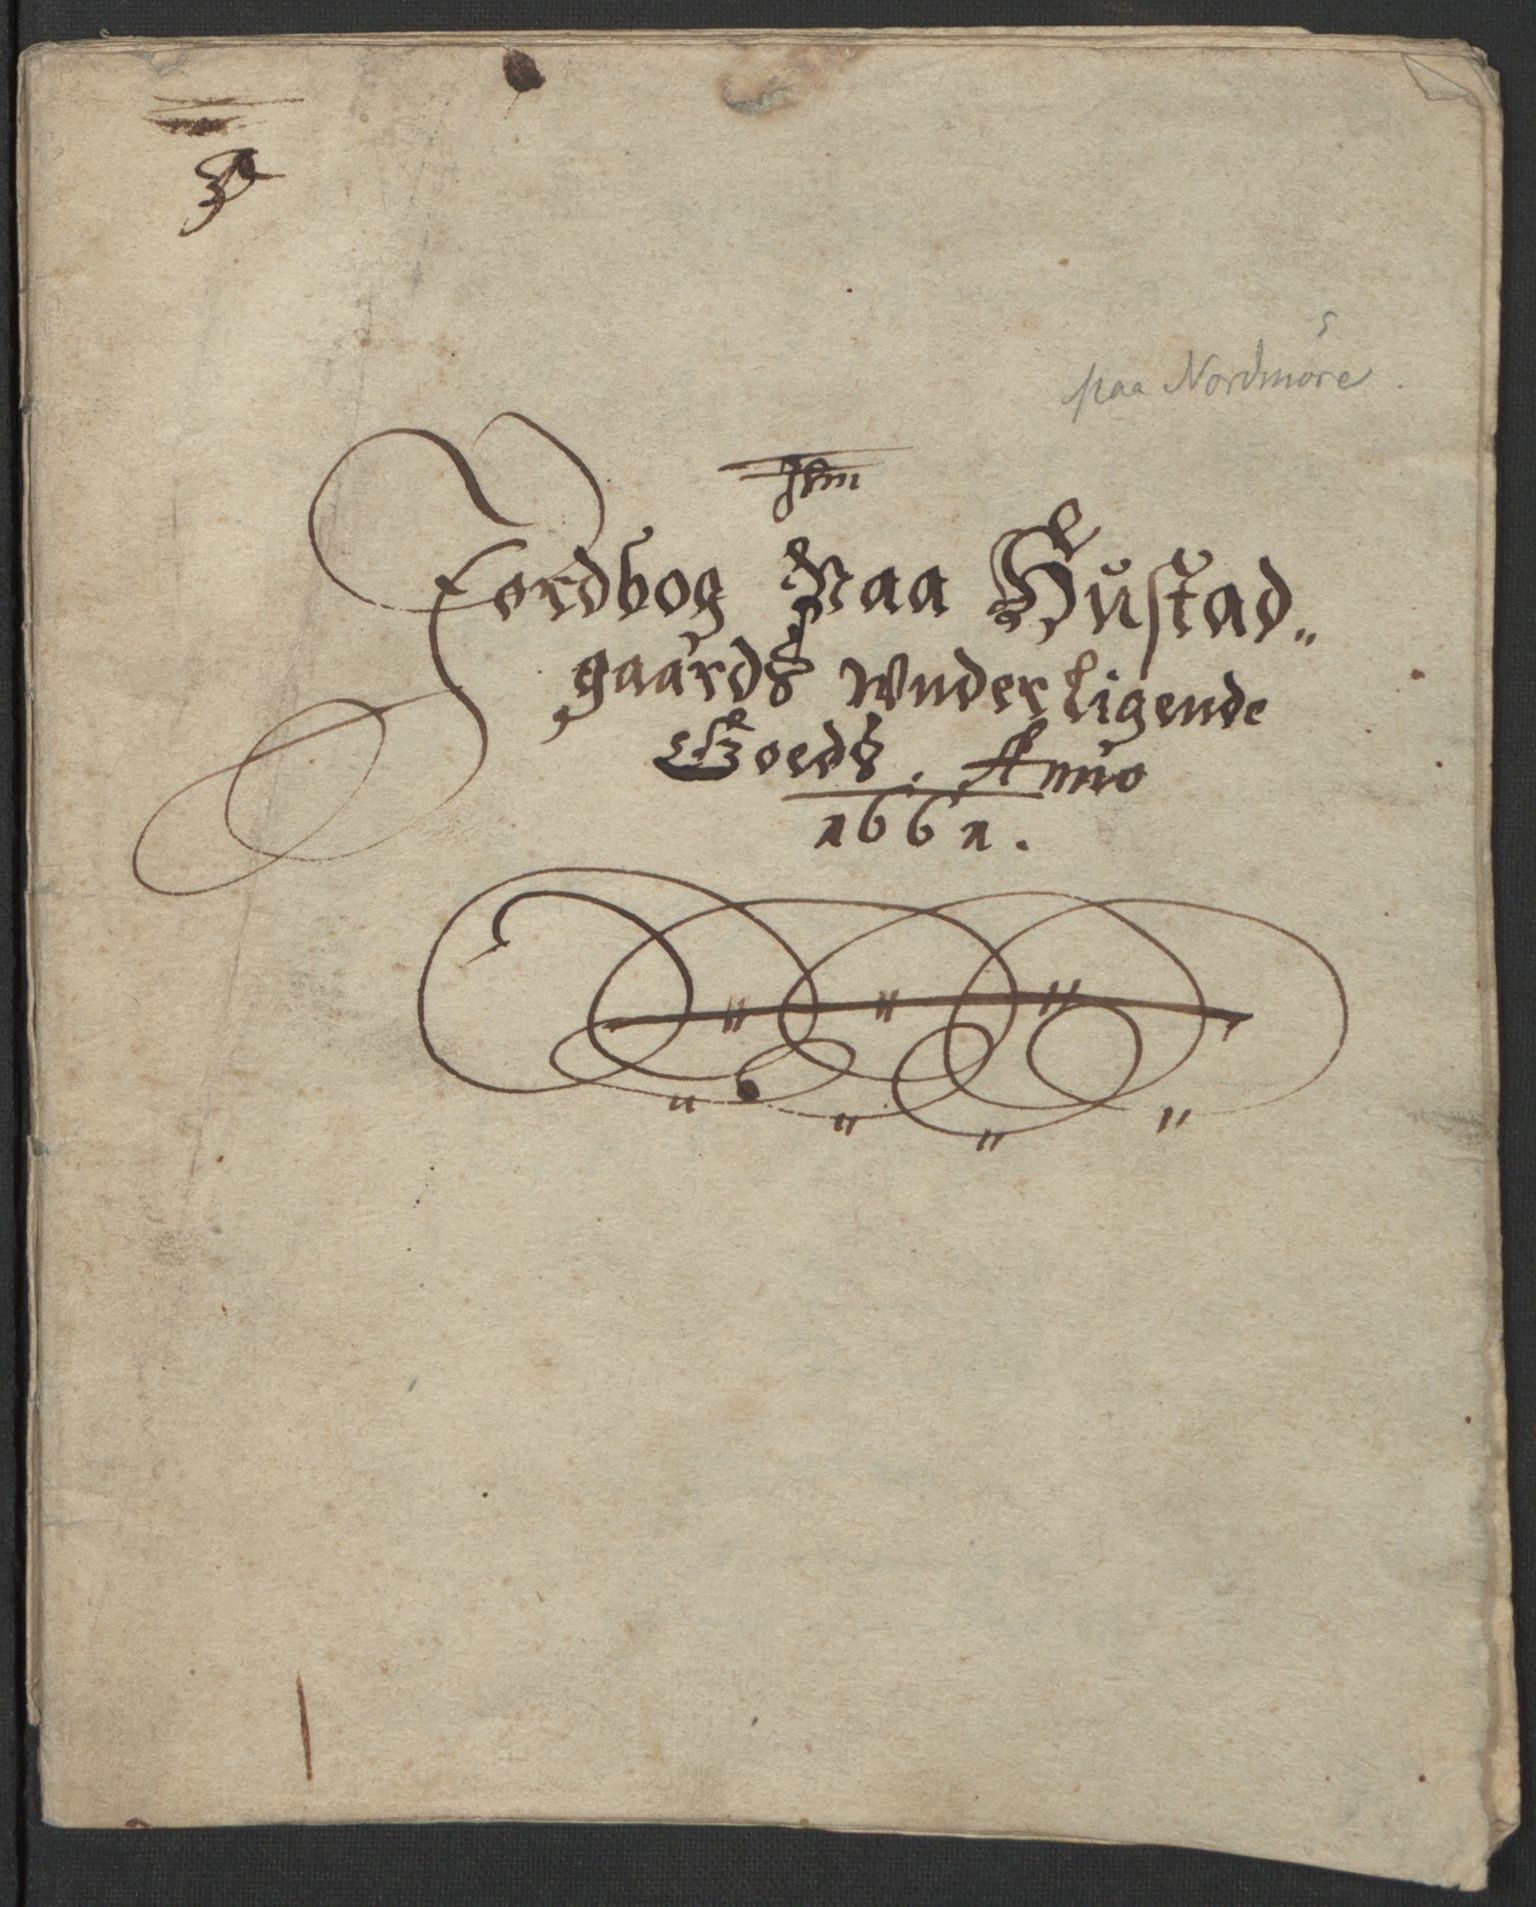 paa Nordmöre
Jordbog Paa Hustad„
gaards wnderligende
Goeds. Anno
1661.